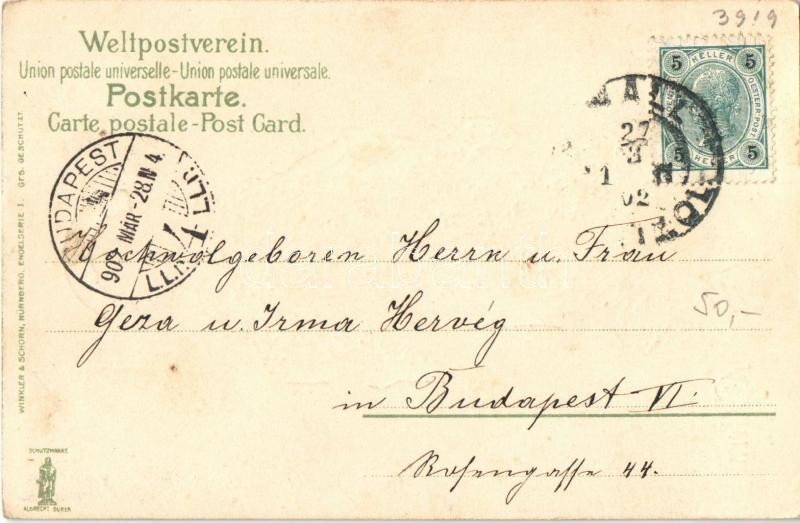 3919
Weltpostverein.
Union postale universelle-Union postale universale.
Postkarte.
Carte postale-Post Card.
5 HELLER 5
OESTERR·POST
5 HELLER 5
27
3
02
TIROL
BUDAPEST
902 MÁR-28.N4
Hochwolgeboren Herrn u. Frau
Géza u. Irma Hervég
50,-
in Budapest VI.
Rosengasse 44.
WINKLER & SCHORN, NÜRNBERG, ENGELSERIE I. GES. GESCHÜTZT
SCHUTZMARKE
ALBRECHT DÜRER